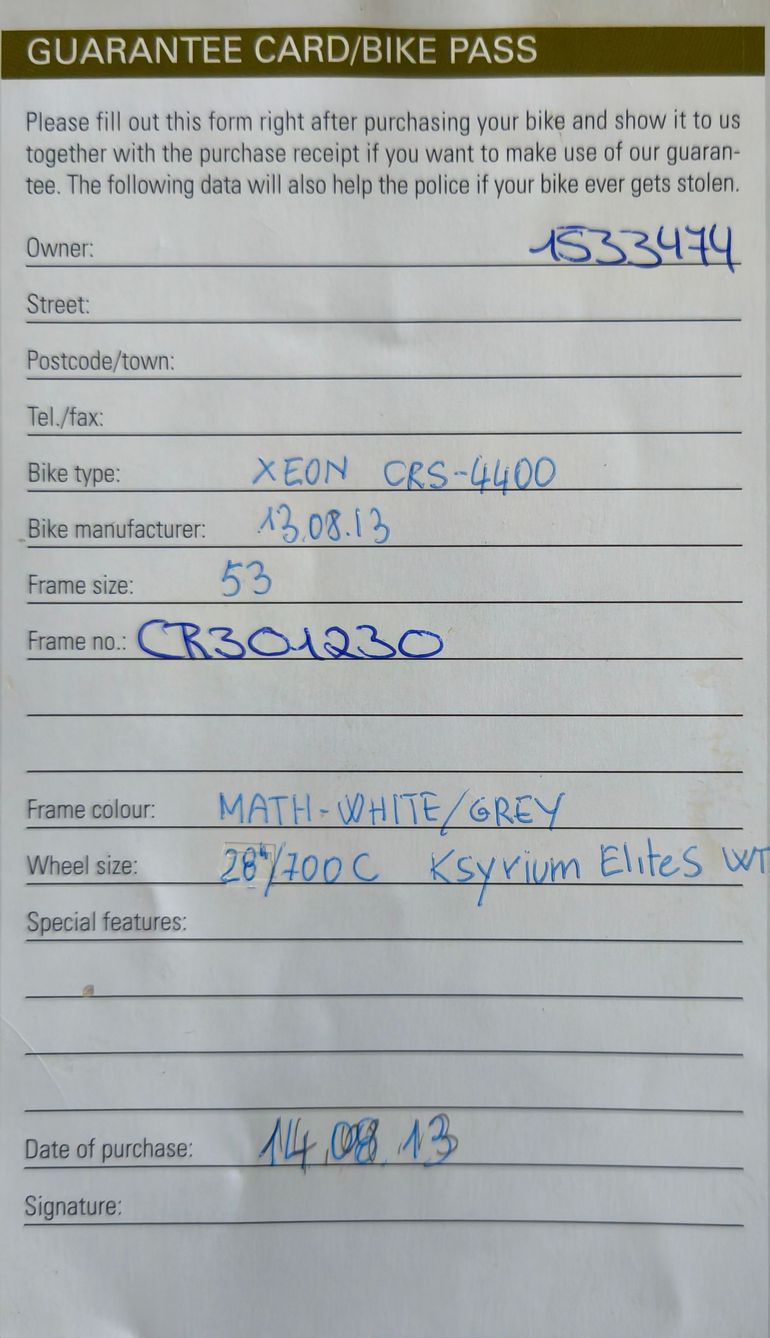 GUARANTEE CARD/BIKE PASS
Please fill out this form right after purchasing your bike and show it to us
together with the purchase receipt if you want to make use of our guaran-
tee. The following data will also help the police if your bike ever gets stolen.
Owner: 1533474
Street:
Postcode/town:
Tel./fax:
Bike type: XEON CRS-4400
Bike manufacturer: 13.08.13
Frame size: 53
Frame no.: CR301230
Frame colour: MATH-WHITE/GREY
Wheel size: 28"/700C Ksyrium Elites WT
Special features:
Date of purchase: 14.08.13
Signature: